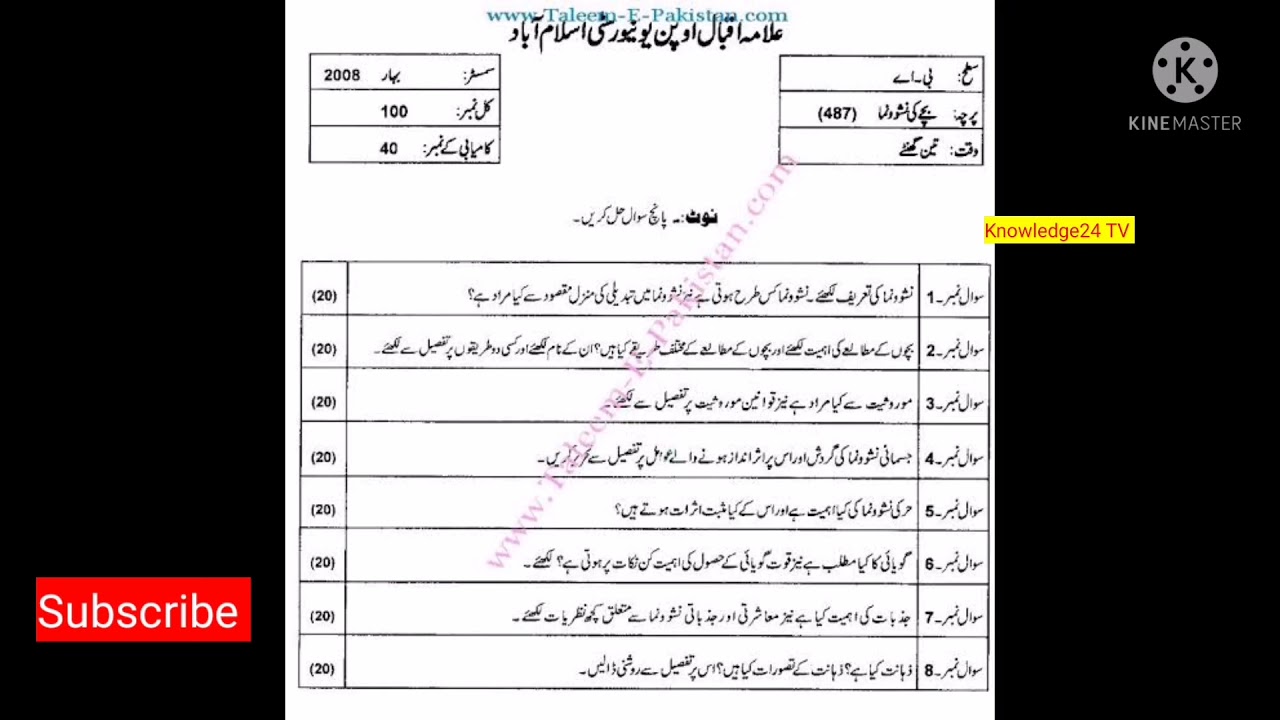 www.Taleem-E-Pakistan.com
علامہ اقبال اوپن یونیورسٹی اسلام آباد
سطح: بی۔اے
سمسٹر: بہار 2008
پرچہ: بچے کی نشوونما (487)
کل نمبر: 100
وقت: تین گھنٹے
کامیابی کے نمبر: 40
K
KINEMASTER
نوٹ:۔ پانچ سوال حل کریں۔
Knowledge24 TV
سوال نمبر۔1 نشوونما کی تعریف لکھئے۔ نشوونما کس طرح ہوتی ہے نیز نشوونما میں تبدیلی کی منزل مقصود سے کیا مراد ہے؟ (20)
سوال نمبر۔2 بچوں کے مطالعے کی اہمیت لکھئے اور بچوں کے مطالعے کے مختلف طریقے کیا ہیں؟ ان کے نام لکھئے اور کسی دو طریقوں پر تفصیل سے لکھئے۔ (20)
سوال نمبر۔3 موروثیت سے کیا مراد ہے نیز قوانین موروثیت پر تفصیل سے لکھئے۔ (20)
سوال نمبر۔4 جسمانی نشوونما کی گردش اور اس پر اثر انداز ہونے والے عوامل پر تفصیل سے تحریر کریں۔ (20)
سوال نمبر۔5 حرکی نشوونما کی کیا اہمیت ہے اور اس کے کیا مثبت اثرات ہوتے ہیں؟ (20)
سوال نمبر۔6 گویائی کا کیا مطلب ہے نیز قوت گویائی کے حصول کی اہمیت کن نکات پر ہوتی ہے؟ لکھئے۔ (20)
سوال نمبر۔7 جذبات کی اہمیت کیا ہے نیز معاشرتی اور جذباتی نشوونما سے متعلق کچھ نظریات لکھئے۔ (20)
سوال نمبر۔8 ذہانت کیا ہے؟ ذہانت کے تصورات کیا ہیں؟ اس پر تفصیل سے روشنی ڈالیں۔ (20)
www.Taleem-E-Pakistan.com
Subscribe